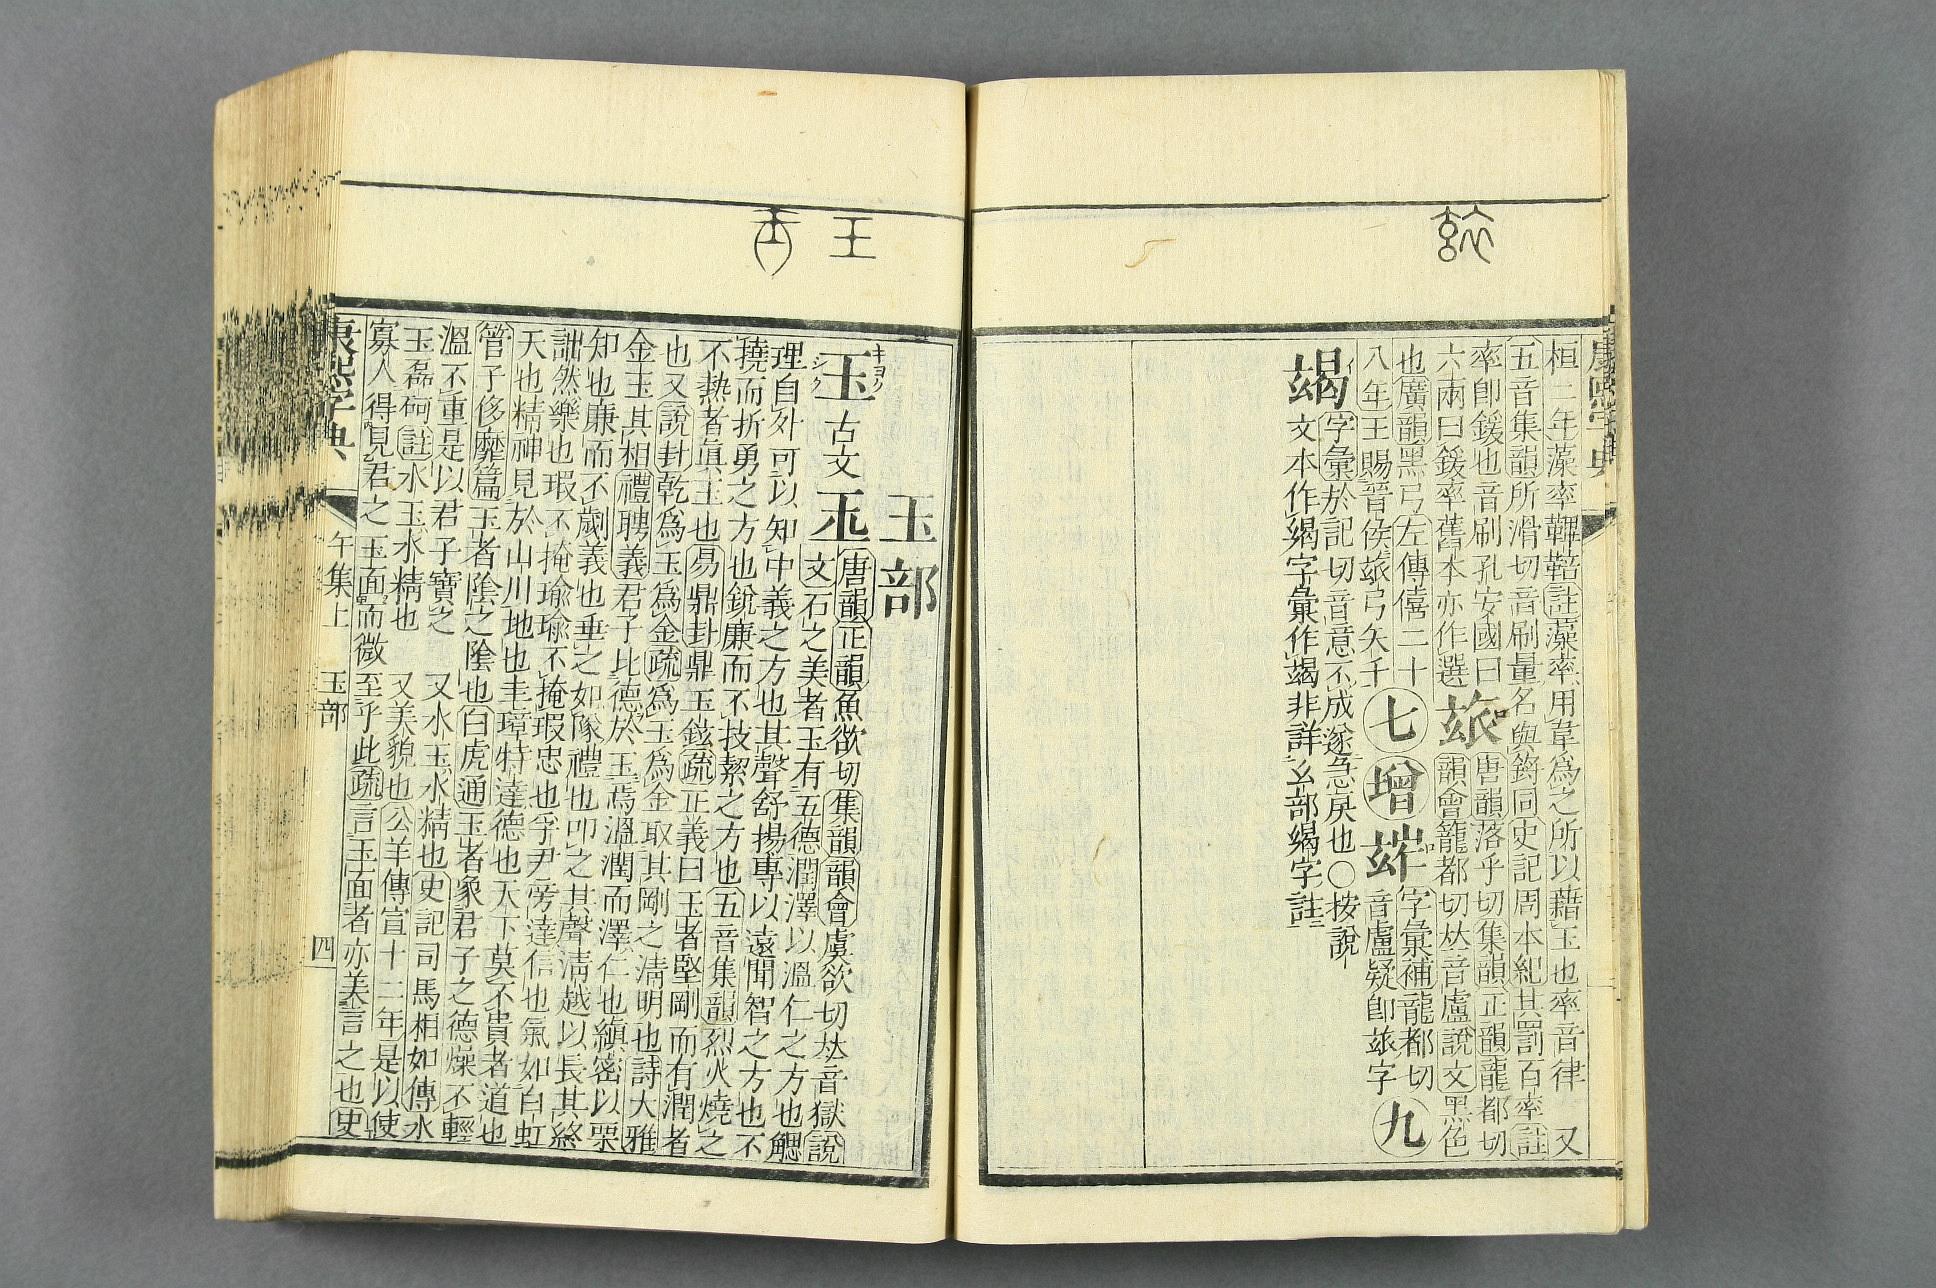 康熙字典
桓二年藻率鞞鞛註藻率用韋爲之所以藉玉也率音律 又
五音集韻所滑切音刷量名與鋝同史記周本紀其罰百率註
率卽鍰也音刷孔安國曰
六兩曰鍰率舊本亦作選
玈
唐韻落乎切集韻正韻龍都切
韻會籠都切𠀤音盧說文黑色
也廣韻黑弓左傳僖二十
八年王賜晉侯玈弓矢千
七 增
字彙補龍都切
音盧疑卽玈字
九
字彙於記切音意不成遂急戾也○按說
文本作 字彙作 非詳幺部 字註
玉部
玉 古文
キヨク
唐韻正韻魚欲切集韻韻會虞欲切𠀤音獄說
文石之美者玉有五德潤澤以溫仁之方也䚡
理自外可以知中義之方也其聲舒揚專以遠聞智之方也不
撓而折勇之方也銳廉而不技絜之方也五音集韻烈火燒之
不熱者眞玉也易鼎卦鼎玉鉉疏正義曰玉者堅剛而有潤者
也又說卦乾爲玉爲金疏爲玉爲金取其剛之淸明也詩大雅
金玉其相禮聘義君子比德於玉焉溫潤而澤仁也縝密以栗
知也廉而不劌義也垂之如隊禮也叩之其聲淸越以長其終
詘然樂也瑕不掩瑜瑜不掩瑕忠也孚尹旁達信也氣如白虹
天也精神見於山川地也圭璋特達德也天下莫不貴者道也
管子侈靡篇玉者陰之陰也白虎通玉者象君子之德燥不輕
溫不重是以君子寶之 又水玉水精也史記司馬相如傳水
玉磊砢註水玉水精也 又美貌也公羊傳宣十二年是以使
寡人得見君之玉面而微至乎此疏言玉面者亦美言之也史
康熙字典 午集上 玉部 四